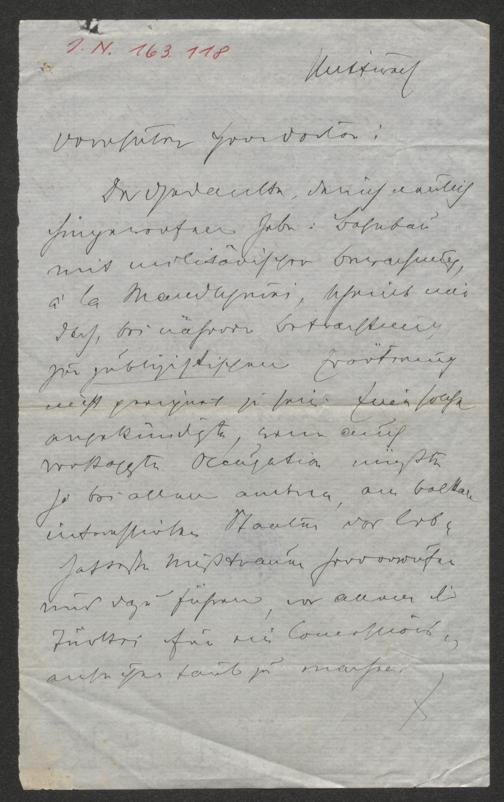 J. N. 163.118
Mittwoch
Verehrter Herr Doctor!
Der Gedanke, den ich neulich
hingeworfen habe: Bahnbau
mit militärischer Bewachung,
à la Mandschurei, scheint mir
doch, bei näherer Betrachtung,
zur publizistischen Erörterung
nicht geeignet zu sein. Eine solche
angekündigte, wenn auch
verkappte Occupation müßte
ja bei allen anderen, am Balkan
interessirten Staaten das leb-
hafteste Mißtrauen hervorrufen
und dazu führen, vor allem die
Türkei für die Concessions-
taub zu machen